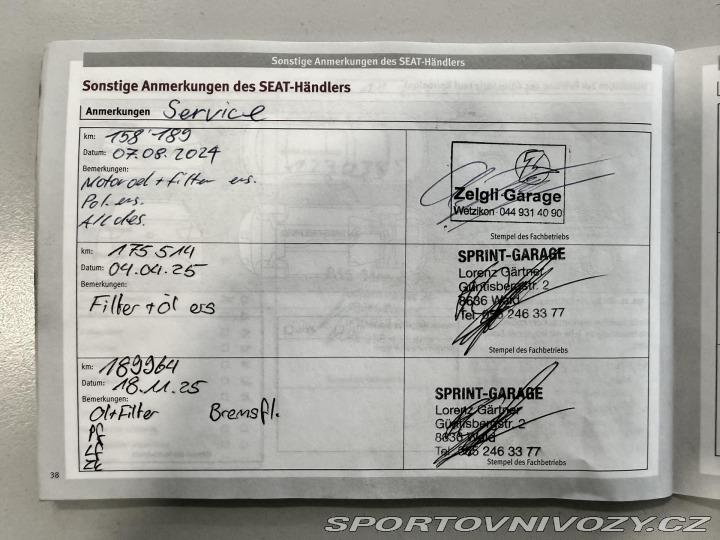 Sonstige Anmerkungen des SEAT-Händlers
Sonstige Anmerkungen des SEAT-Händlers
Anmerkungen Service
km: 158'189
Datum: 07.08.2024
Bemerkungen:
Motoroel + filter ers.
Pol. ers.
Zelgli Garage
Wetzikon 044 931 40 90
Stempel des Fachbetriebs
km: 175514
Datum: 04.04.25
Bemerkungen:
Filter + Öl ers
SPRINT-GARAGE
Lorenz Gärtner
Güntisbergstr. 2
8636 Wald
Tel. 055 246 33 77
Stempel des Fachbetriebs
km: 189964
Datum: 18.11.25
Bemerkungen:
Öl+Filter Bremsfl.
Pf
Lf
Zk
SPRINT-GARAGE
Lorenz Gärtner
Güntisbergstr. 2
8636 Wald
Tel. 055 246 33 77
Stempel des Fachbetriebs
38
SPORTOVNIVOZY.CZ